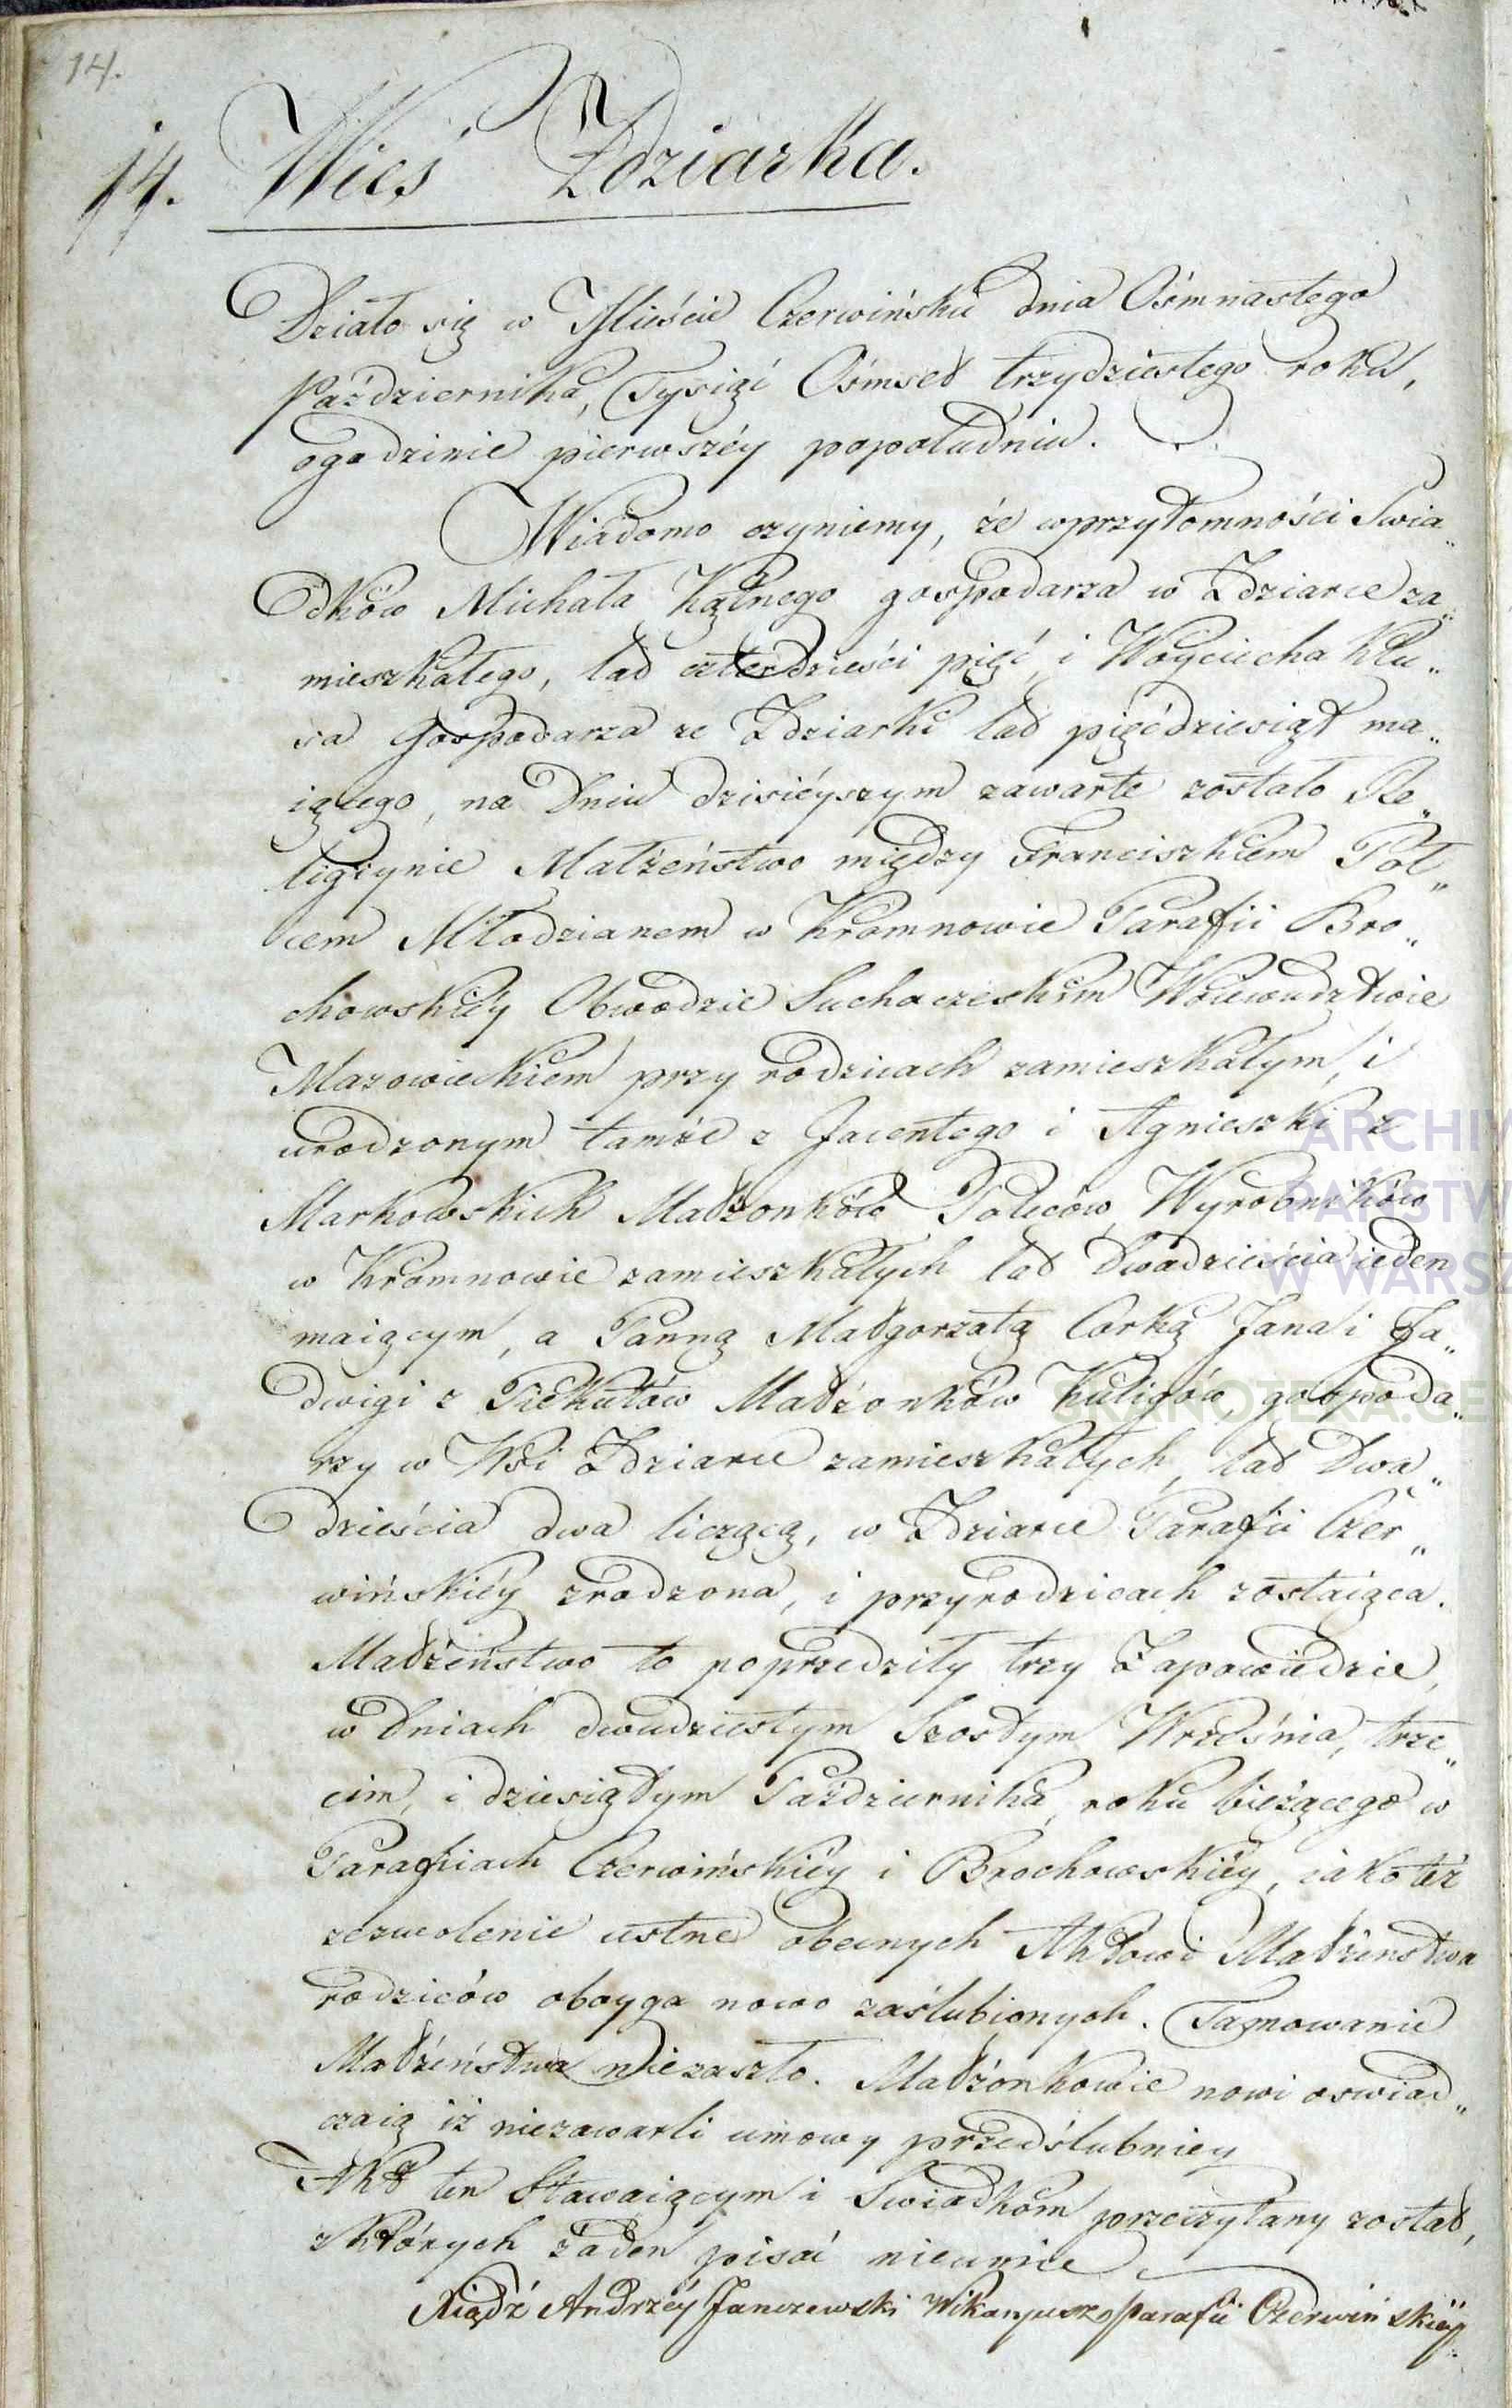 14.
14. Wieś Zdziarka.
Działo się w Mieście Czerwińsku dnia Ośmnastego
Października, Tysiąć Ośmset trzydziestego roku,
ogodzinie pierwszéy popołudniu.
Wiadomo czyniemy, że wprzytomności Swia„
dków Michała Kątnego gospodarza w Zdziarce za„
mieszkałego, lat czterdzieści pięć, i Woyciecha Kłu„
sa Gospodarza ze Zdziarki lat pięćdziesiąt ma„
iącego, na Dniu dzisiéyszym zawarte zostało Re„
ligiynie Małżeństwo między Franciszkiem Pol„
cem Młodzianem w Kromnowie Parafii Bro„
chowskiéy Obwodzie Sochaczeskim Woiewudztwie
Mazowieckiem przy rodzicach zamieszkałym, i
urodzonym tamże z Jacentego i Agnieszki z
Markowskich Małżonków Polców, Wyrobników
w Kromnowie zamieszkałych lat Dwadzieścia ieden
maiącym, a Panną Małgorzatą Corką Jana i Ja„
dwigi z Piekutów Małżonków Kuligów, gospoda„
rzy w Wsi Zdziarce zamieszkałych, lat Dwa„
dzieścia dwa liczącą, w Zdziarce Parafii Czer„
wińskiéy zrodzona, i przyrodzicach zostaiąca.
Małżeństwo to poprzedziły trzy Zapowiedzie,
w Dniach dwudziestym Szostym Września, trze„
cim, i dziesiątym Października, roku bieżącego w
Parafiach Czerwińskiéy i Brochowskiéy, iako też
zezwolenie ustne obecnych Aktowi Małżeństwa
rodziców oboyga nowo zaślubionych. Tamowanie
Małżeństwa niezaszło. Małżonkowie nowi oswiad„
czaią iż niezawarli umowy przedślubniey
Akt ten Stawaiącym i Swiadkom przeczytany został,
z których żaden pisać nieumie
Xiądź Andrzéy Janczewski Wikaryusz Parafii Czerwińskiéy.
ARCHI
PAŃSTW
W WARSZ
SKANOTEKA.GE